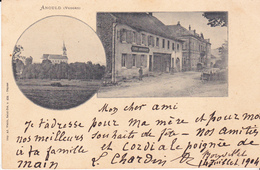 ANOULD (VOSGES)
Mon cher ami
Je t'adresse pour ma mère et pour moi
nos meilleurs souhaits de fête - Nos amitiés
à ta famille et cordiale poignée de
main L. Chardin
14 Juillet 1904